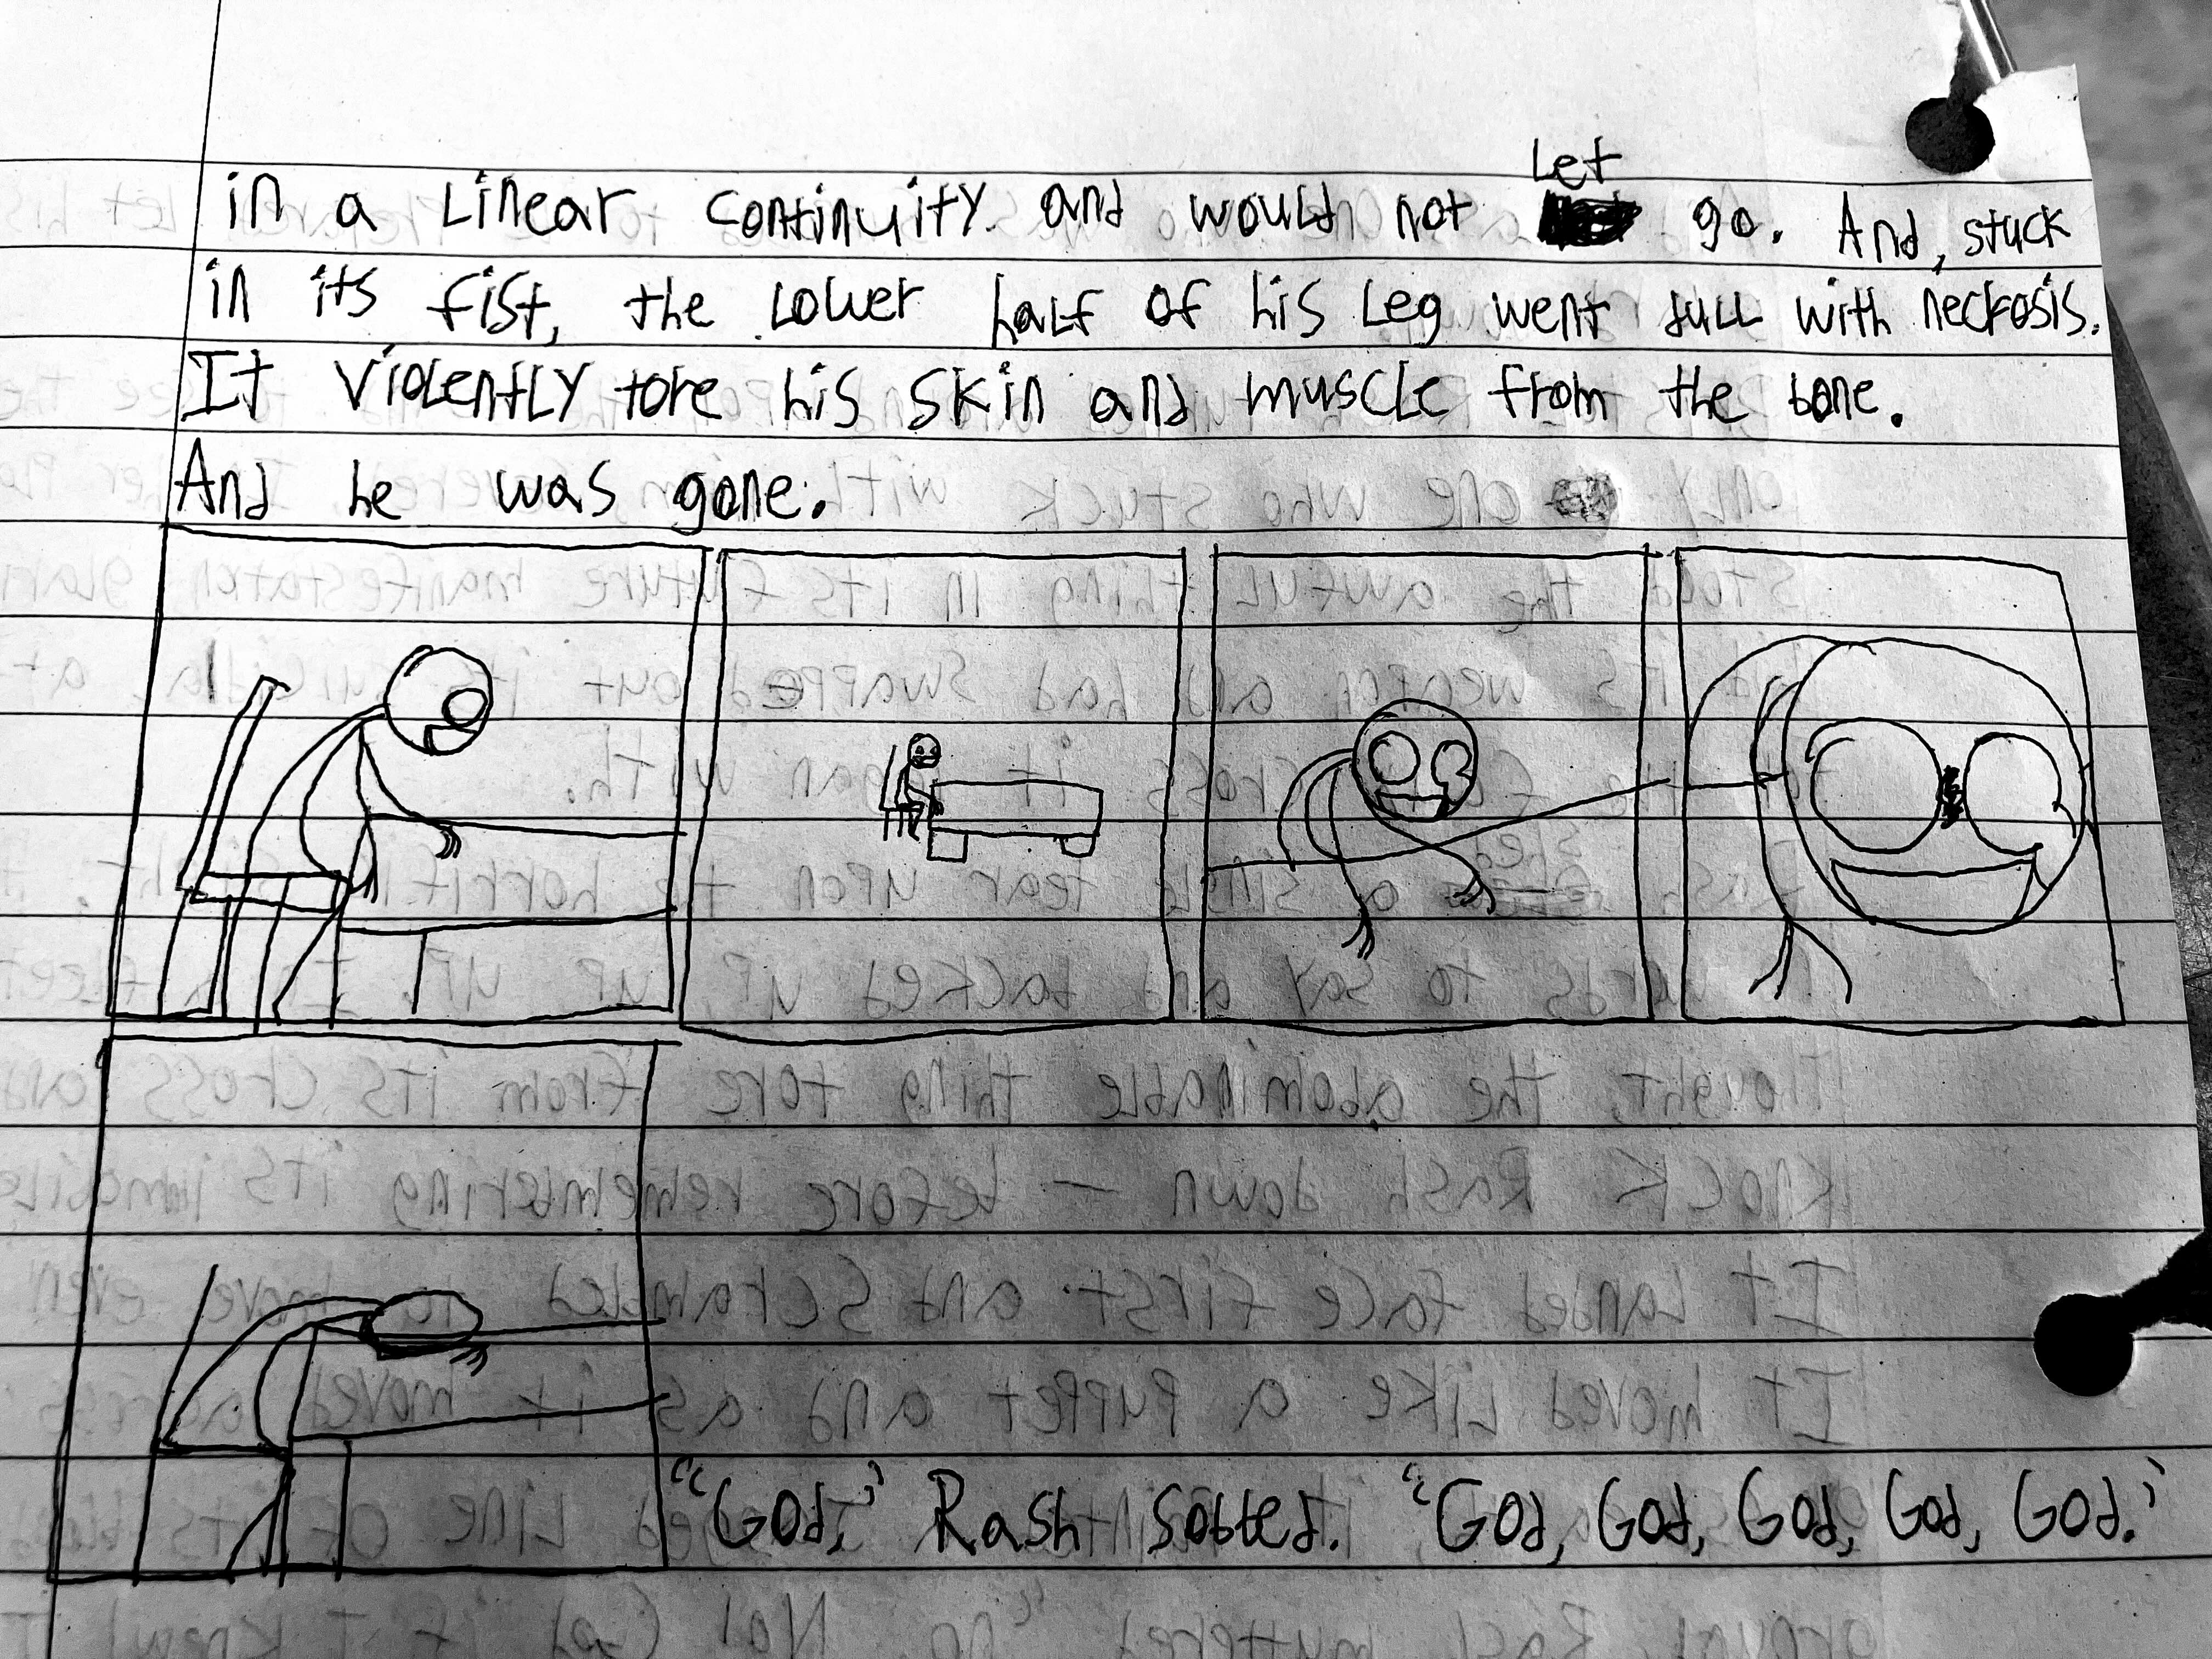 in a Linear continuity. and would not Let go. And, stuck
in its fist, the Lower half of his Leg went full with neckosis.
It violently tore his skin and muscle from the bone.
And he was gone.
"God," Rash sobbed. "God, God, God, God, God."